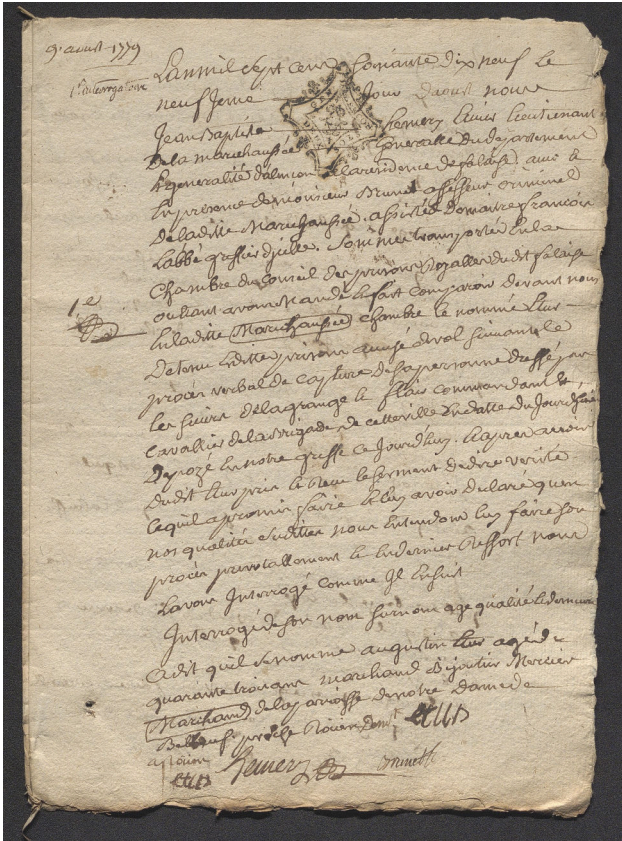 9e aoust 1779
1er interrogatoire
L'an mil sept cent soixante dix neuf le
neufieme jour d'aoust nous
Jean Baptiste hemery lieutenant
de la marechaussée generalle du departement
et generalité d'alencon a la residence de falaise, avec et
en presence de monsieur Brunet assesseur criminel
de laditte Marechaussée, assistés de maitre francois
Labbé greffier d'icelle. Sommes transportés en la
Chambre du Conseil des prisons Royalles dudit falaise
ou etant avons mandé et fait comparoir devant nous
en laditte Marechaussée chambre le nommé
detenu esdittes prisons accusé de vol suivant le
procès verbal de capture de sa personne dressé par
les sieurs de la grange et commandant et
cavaliers de la Brigade de cette ville en datte du jourd'huy
deposé en notre greffe ce jourd'huy. et apres avoir
dudit pris et receu le serment de dire verité
ce qu'il a promis faire et luy avoir declaré qu'en
nos qualités susdittes nous entendons luy faire son
procès prevotallement et en dernier ressort nous
L'avons Interrogé comme il ensuit
Interrogé de son nom surnom age qualité et demeure
a dit qu'il se nomme augustin agé de
quarante trois ans marchand Bijoutier Mercier
Marchand de la parroisse de notre dame de
proche Rouen demt
a Rouen
hemery Brunet